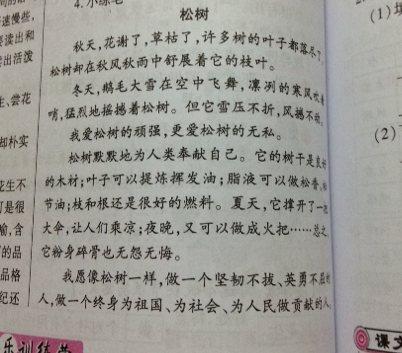 速慢些,
读出和
出活泼
生、尝花
却朴实
花生不
可是很
喻,含
的品
品格
纪还
4. 小练笔
松树
秋天,花谢了,草枯了,许多树的叶子都落尽了,
松树却在秋风秋雨中舒展着它的枝叶。
冬天,鹅毛大雪在空中飞舞,凛冽的寒风吹着
哨,猛烈地摇撼着松树。但它雪压不折,风撼不动。
我爱松树的顽强,更爱松树的无私。
松树默默地为人类奉献自己。它的树干是良好
的木材;叶子可以提炼挥发油;脂液可以做松香、松
节油;枝和根还是很好的燃料。夏天,它撑开了一把
大伞,让人们乘凉;夜晚,又可以做成火把……总之,
它粉身碎骨也无怨无悔。
我愿像松树一样,做一个坚韧不拔、英勇不屈的
人,做一个终身为祖国、为社会、为人民做贡献的人。
乐训练营
(1)
(2)
课文